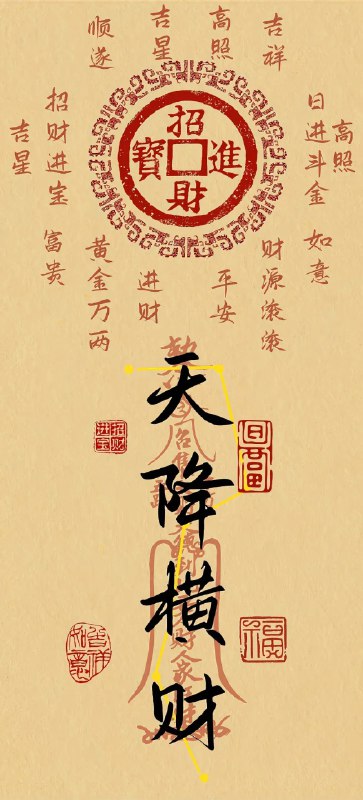 吉祥
高照
吉星
顺遂
高照
日进斗金 如意
招财进宝 富贵
吉星
招財進寶
财源滚滚
平安
进财
黄金万两
天降横财
招财进宝
日富
福
吉祥如意